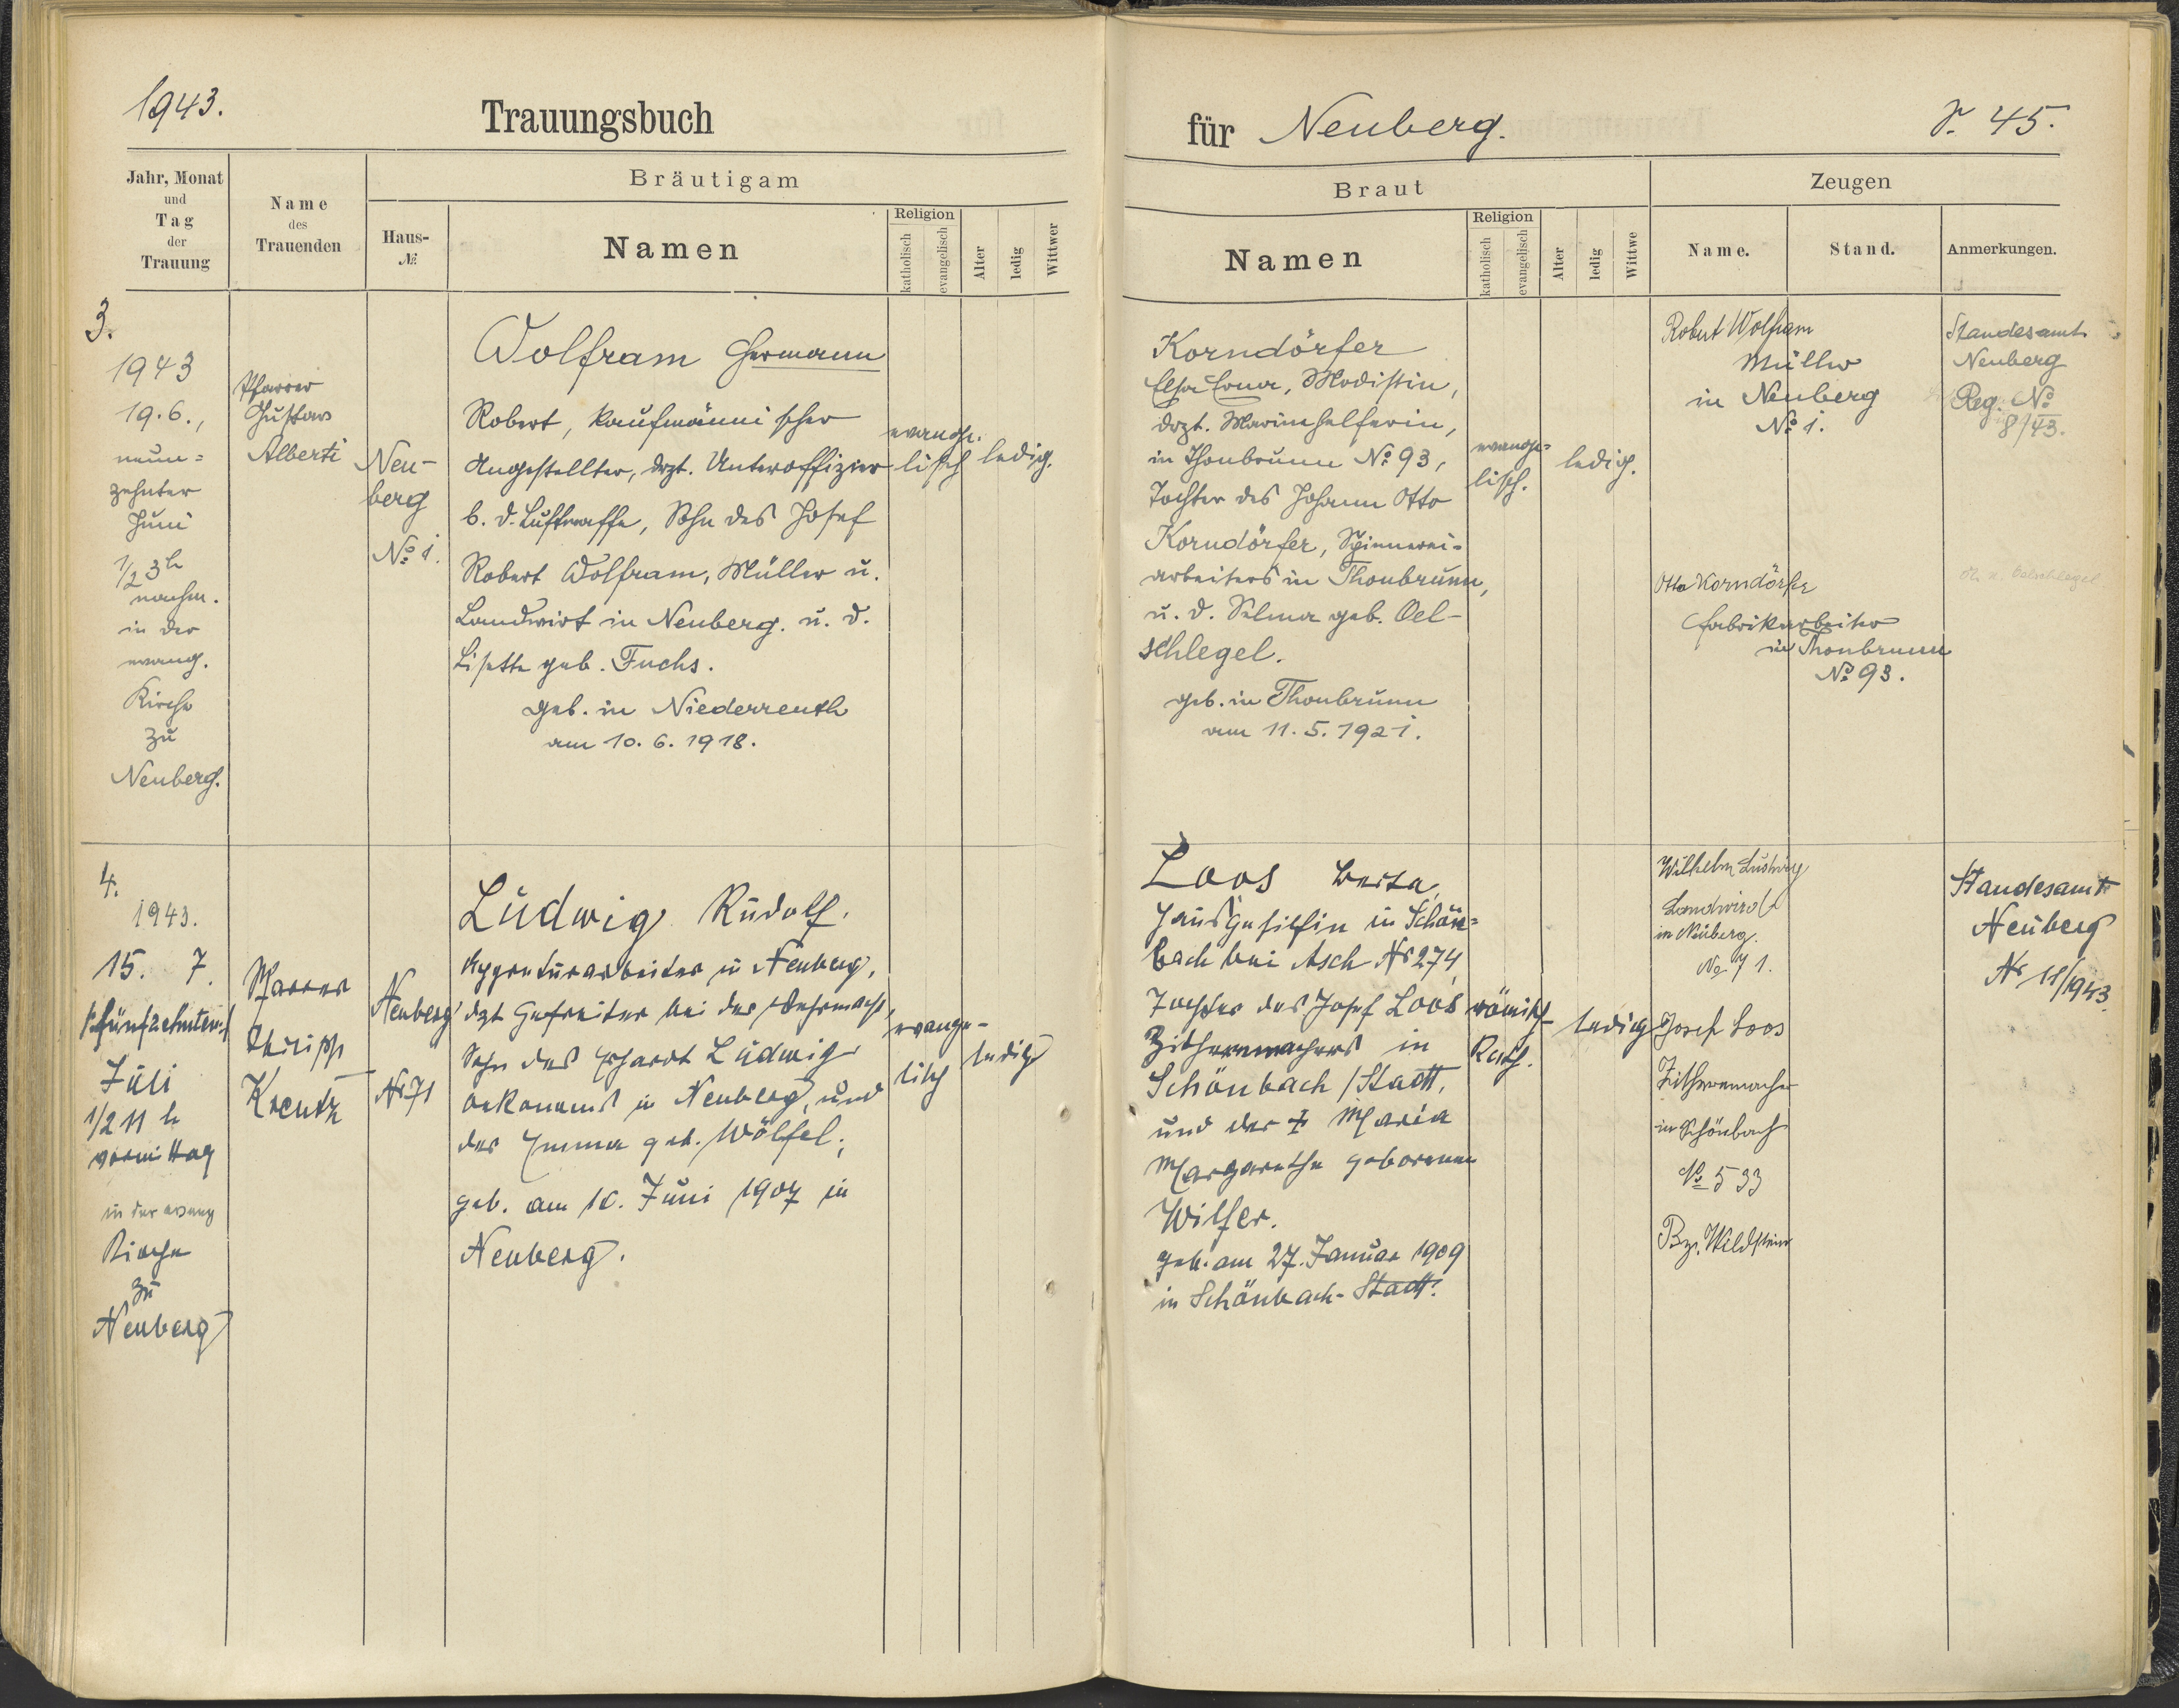 1943.
Trauungsbuch
für Neuberg.
S. 45.
Jahr, Monat
und
Tag
der
Trauung
Name
des
Trauenden
Bräutigam
Haus-
№
Namen
Religion
katholisch
evangelisch
Alter
ledig
Wittwer
Braut
Namen
Religion
katholisch
evangelisch
Alter
ledig
Wittwe
Zeugen
Name.
Stand.
Anmerkungen.
3.
1943
19.6.,
neun=
zehnter
Juni
1/2 3h
nachm.
in der
evang.
Kirche
zu
Neuberg.
Pfarrer
Gustav
Alberti
Neu-
berg
№ 1.
Wolfram Hermann
Robert, kaufmännischer
Angestellter, drzt. Unteroffizier
b. d. Luftwaffe, Sohn des Josef
Robert Wolfram, Müller u.
Landwirt in Neuberg. u. d.
Lisette geb. Fuchs.
geb. in Niederreuth
am 10. 6. 1918.
evange-
lisch
ledig.
Korndörfer
Elsa Erna, Modistin,
drzt. Marinehelferin,
in Thonbrunn № 93,
Tochter des Johann Otto
Korndörfer, Spinnerei-
arbeiters in Thonbrunn,
u. d. Selma geb. Oel-
schlegel.
geb. in Thonbrunn
am 11. 5. 1921.
evange=
lisch.
ledig.
Robert Wolfram
Müller
in Neuberg
№ 1.
Otto Korndörfer
Fabrikarbeiter
in Thonbrunn
№ 93.
Standesamt
Neuberg
Reg. №
8/43.
Oelschlegel
4.
1943.
15. 7.
/:fünfzehnter:/
Juli
1/2 11 h
vormittag
in der evang
Kirche
zu
Neuberg
Pfarrer
Philipp
Kreutz
Neuberg
Nr 71
Ludwig Rudolf.
Appreturarbeiter in Neuberg,
dzt Gefreiter bei der Wehrmacht,
Sohn des Erhardt Ludwig
Oekonoms in Neuberg, und
der Emma geb. Wölfel;
geb. am 10. Juni 1907 in
Neuberg.
evange-
lisch
ledig
Loos Berta,
Hausgehilfin in Schön=
bach bei Asch Nr 274,
Tochter des Josef Loos
Zithernmachers in
Schönbach / Stadt,
und der † Maria
Margarethe geborenen
Wilfer.
geb. am 27. Januar 1909
in Schönbach-Stadt.
römisch-
Kath.
ledig
Wilhelm Ludwig
Landwirt
in Neuberg.
No 71.
Josef Loos
Zithernmacher
in Schönbach
№ 533
Bez. Wildstein
Standesamt
Neuberg
Nr 11/1943